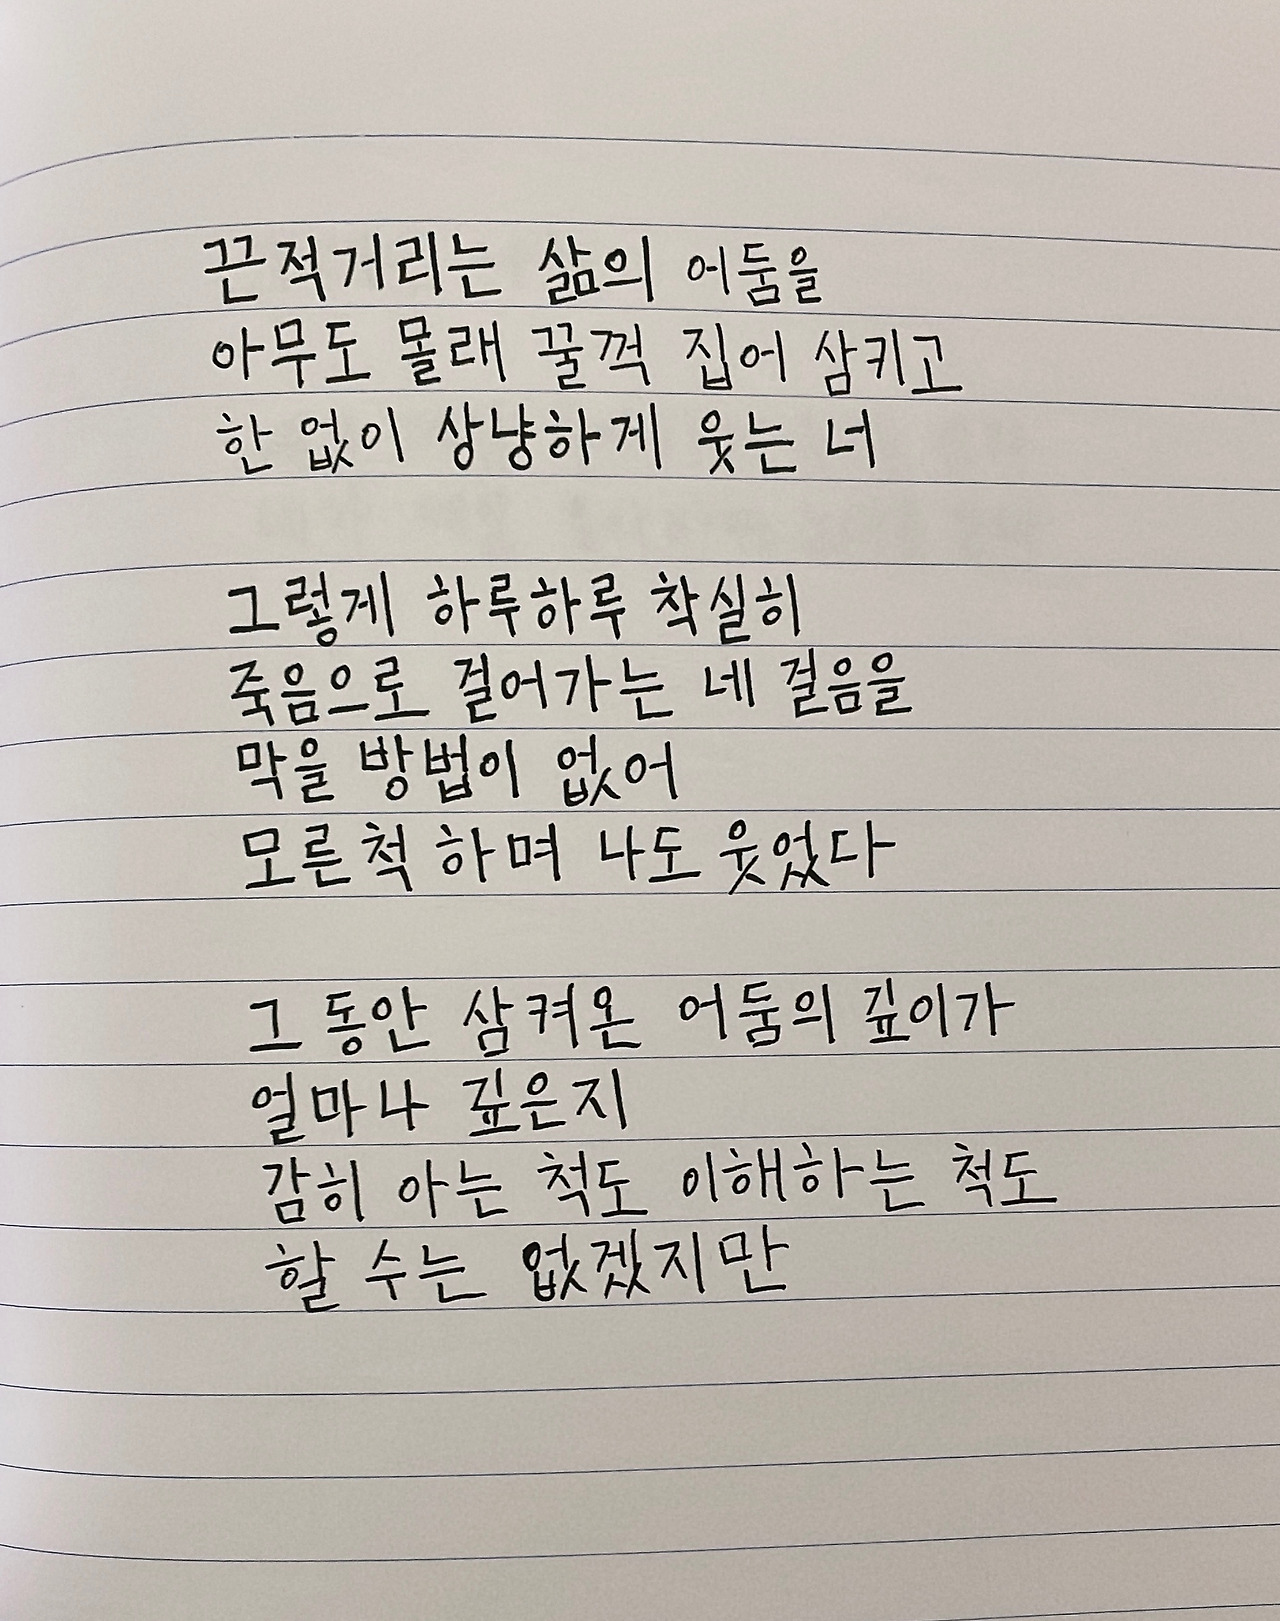 끈적거리는 삶의 어둠을
아무도 몰래 꿀꺽 집어 삼키고
한 없이 상냥하게 웃는 너
그렇게 하루하루 착실히
죽음으로 걸어가는 네 걸음을
막을 방법이 없어
모른척 하며 나도 웃었다
그 동안 삼켜온 어둠의 깊이가
얼마나 깊은지
감히 아는 척도 이해하는 척도
할 수는 없겠지만